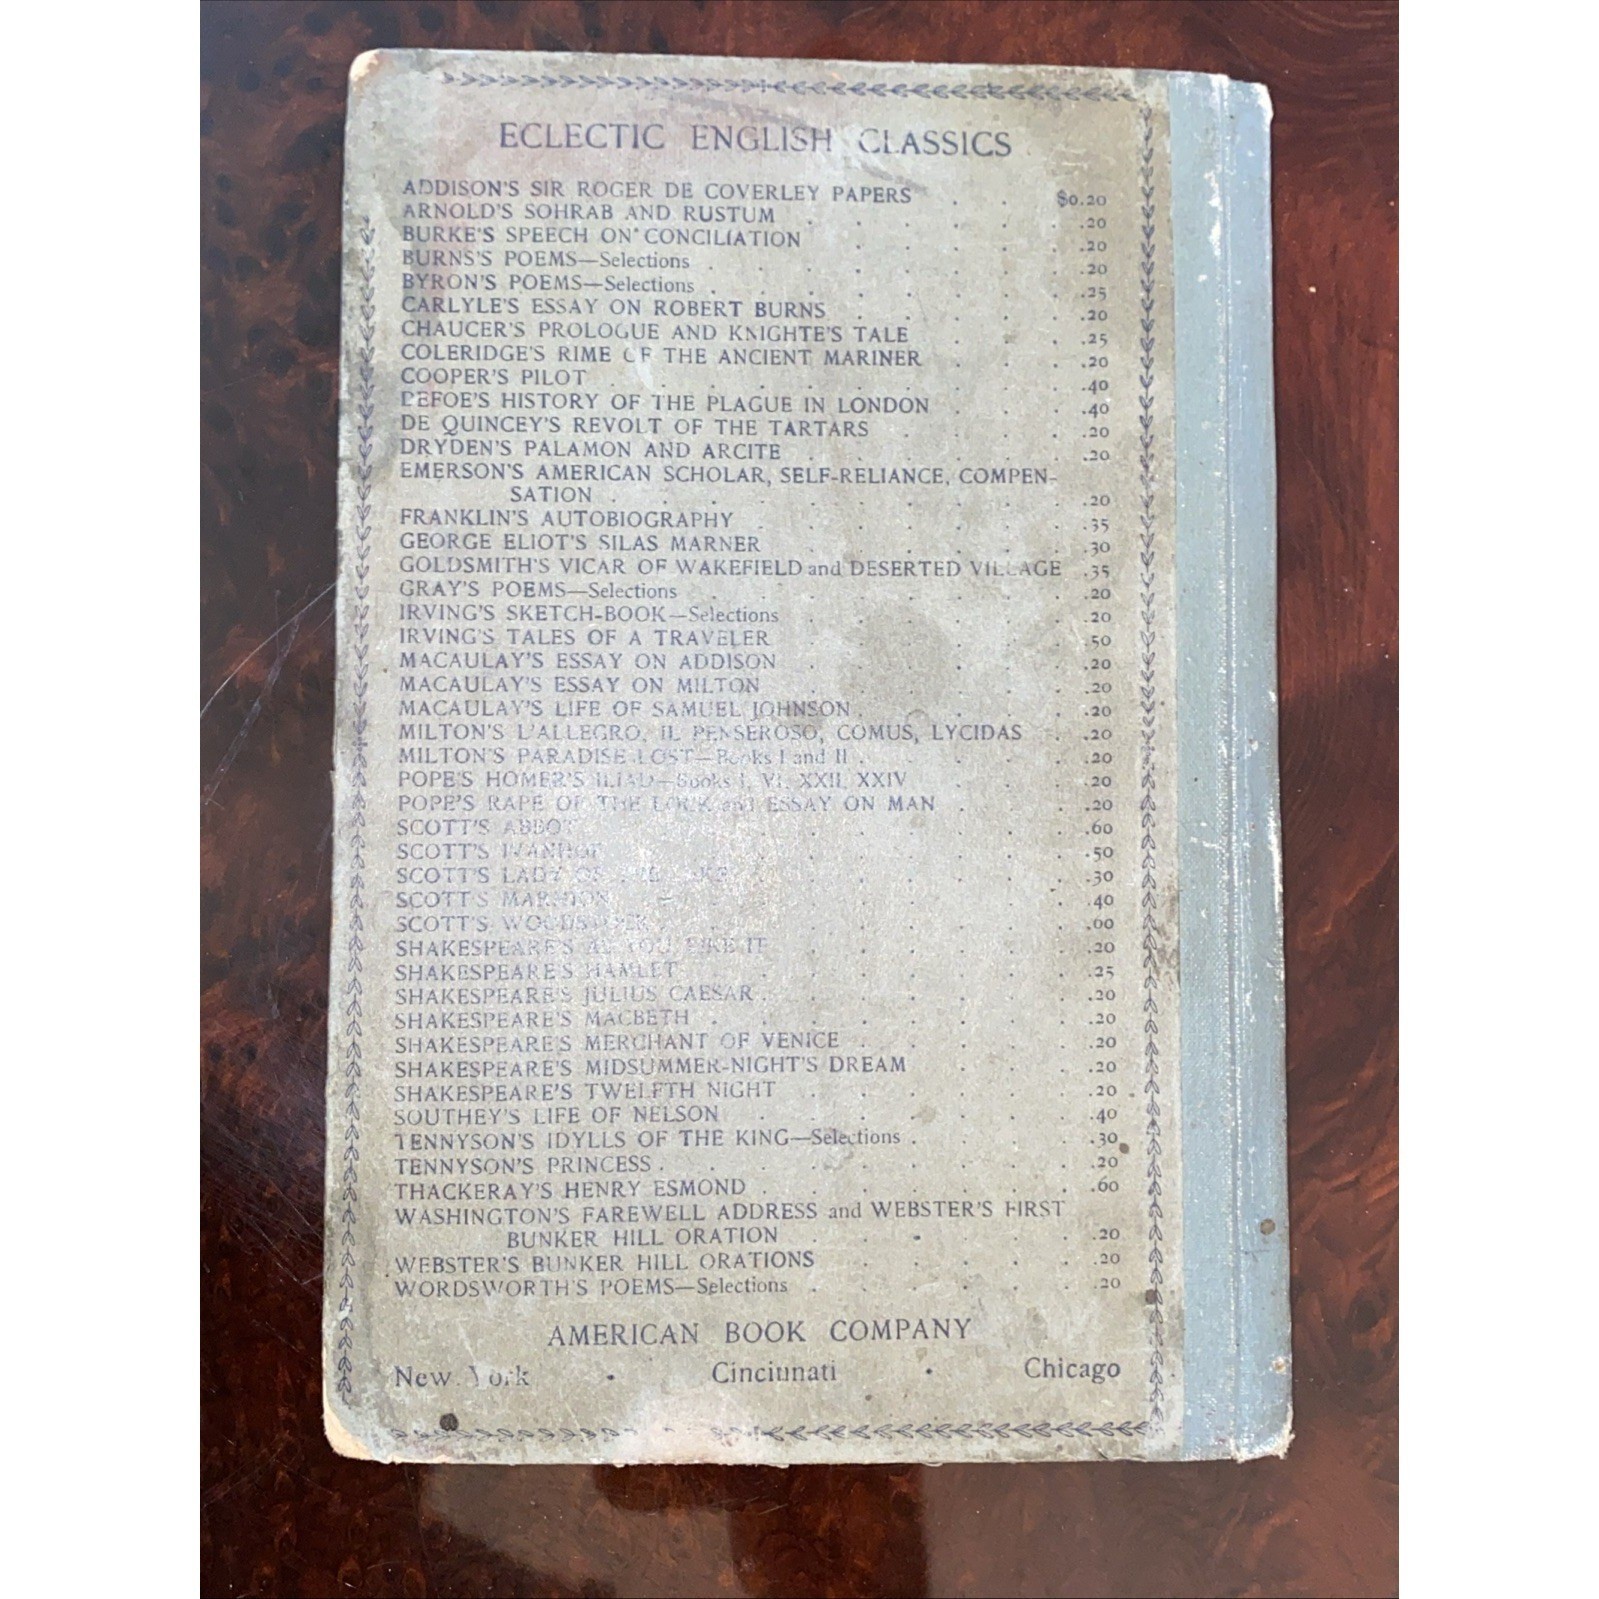 ECLECTIC ENGLISH CLASSICS
ADDISON'S SIR ROGER DE COVERLEY PAPERS . . $0.20
ARNOLD'S SOHRAB AND RUSTUM . . . . . .20
BURKE'S SPEECH ON CONCILIATION . . . . .20
BURNS'S POEMS—Selections . . . . . . . .20
BYRON'S POEMS—Selections . . . . . . . .25
CARLYLE'S ESSAY ON ROBERT BURNS . . . . .20
CHAUCER'S PROLOGUE AND KNIGHTE'S TALE . . . .25
COLERIDGE'S RIME OF THE ANCIENT MARINER . . . .20
COOPER'S PILOT . . . . . . . . . .40
DEFOE'S HISTORY OF THE PLAGUE IN LONDON . . . .40
DE QUINCEY'S REVOLT OF THE TARTARS . . . . .20
DRYDEN'S PALAMON AND ARCITE . . . . . .20
EMERSON'S AMERICAN SCHOLAR, SELF-RELIANCE, COMPEN-
SATION . . . . . . . . . .20
FRANKLIN'S AUTOBIOGRAPHY . . . . . . .35
GEORGE ELIOT'S SILAS MARNER . . . . . .30
GOLDSMITH'S VICAR OF WAKEFIELD and DESERTED VILLAGE .35
GRAY'S POEMS—Selections . . . . . . . .20
IRVING'S SKETCH-BOOK—Selections . . . . . .20
IRVING'S TALES OF A TRAVELER . . . . . .50
MACAULAY'S ESSAY ON ADDISON . . . . . .20
MACAULAY'S ESSAY ON MILTON . . . . . .20
MACAULAY'S LIFE OF SAMUEL JOHNSON . . . . .20
MILTON'S L'ALLEGRO, IL PENSEROSO, COMUS, LYCIDAS . .20
MILTON'S PARADISE LOST—Books I and II . . . . .20
POPE'S HOMER'S ILIAD—Books I, VI, XXII, XXIV . . . .20
POPE'S RAPE OF THE LOCK and ESSAY ON MAN . . . .20
SCOTT'S ABBOT . . . . . . .60
SCOTT'S IVANHOE . . . . . . .50
SCOTT'S LADY OF THE LAKE . . . . . .30
SCOTT'S MARMION . . . . . . .40
SCOTT'S WOODSTOCK . . . . . . .60
SHAKESPEARE'S AS YOU LIKE IT . . . . . .20
SHAKESPEARE'S HAMLET . . . . . . . .25
SHAKESPEARE'S JULIUS CAESAR . . . . . . .20
SHAKESPEARE'S MACBETH . . . . . . . .20
SHAKESPEARE'S MERCHANT OF VENICE . . . . .20
SHAKESPEARE'S MIDSUMMER-NIGHT'S DREAM . . . .20
SHAKESPEARE'S TWELFTH NIGHT . . . . . .20
SOUTHEY'S LIFE OF NELSON . . . . . . .40
TENNYSON'S IDYLLS OF THE KING—Selections . . . . .30
TENNYSON'S PRINCESS . . . . . . . . .20
THACKERAY'S HENRY ESMOND . . . . . . .60
WASHINGTON'S FAREWELL ADDRESS and WEBSTER'S FIRST
BUNKER HILL ORATION . . . . . .20
WEBSTER'S BUNKER HILL ORATIONS . . . . .20
WORDSWORTH'S POEMS—Selections . . . . . .20
AMERICAN BOOK COMPANY
New York • Cincinnati • Chicago